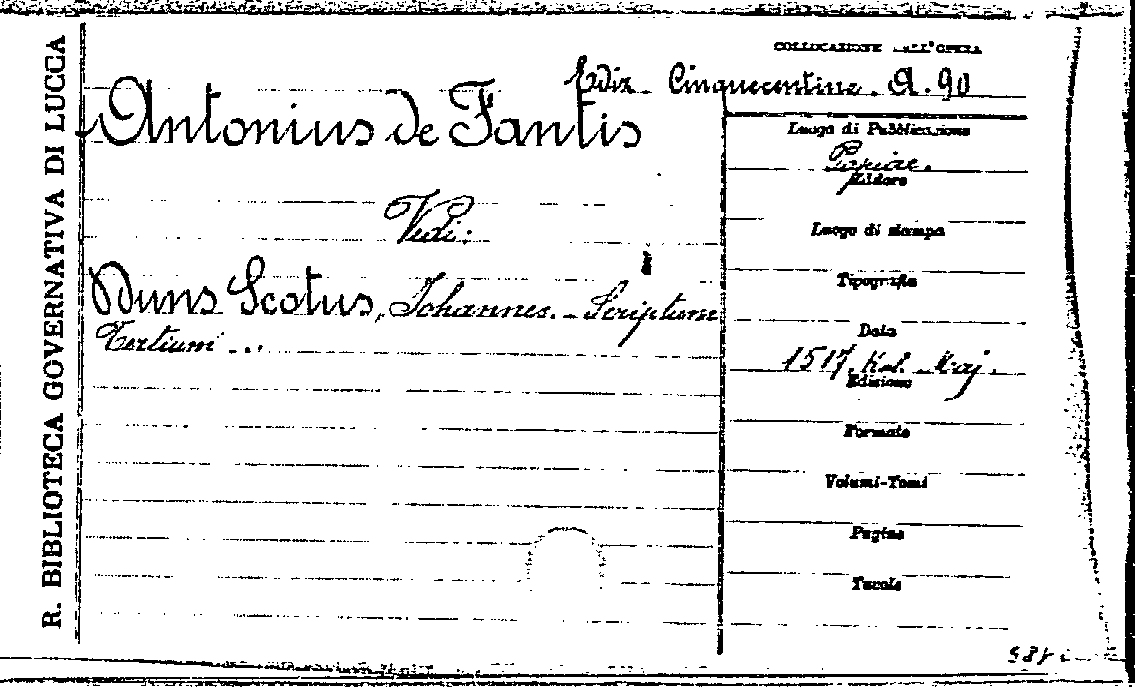 R. BIBLIOTECA GOVERNATIVA DI LUCCA
COLLOCAZIONE DELL'OPERA
Ediz. Cinquecentine. A. 90
Antonius de Fantis
Vedi:
Duns Scotus, Johannes. - Scriptum
Tertium ...
Luogo di Pubblicazione
Papiae.
Editore
Luogo di stampa
Tipografia
Data
1517, Kal. Maj.
Edizione
Formato
Volumi-Tomi
Pagine
Tavole